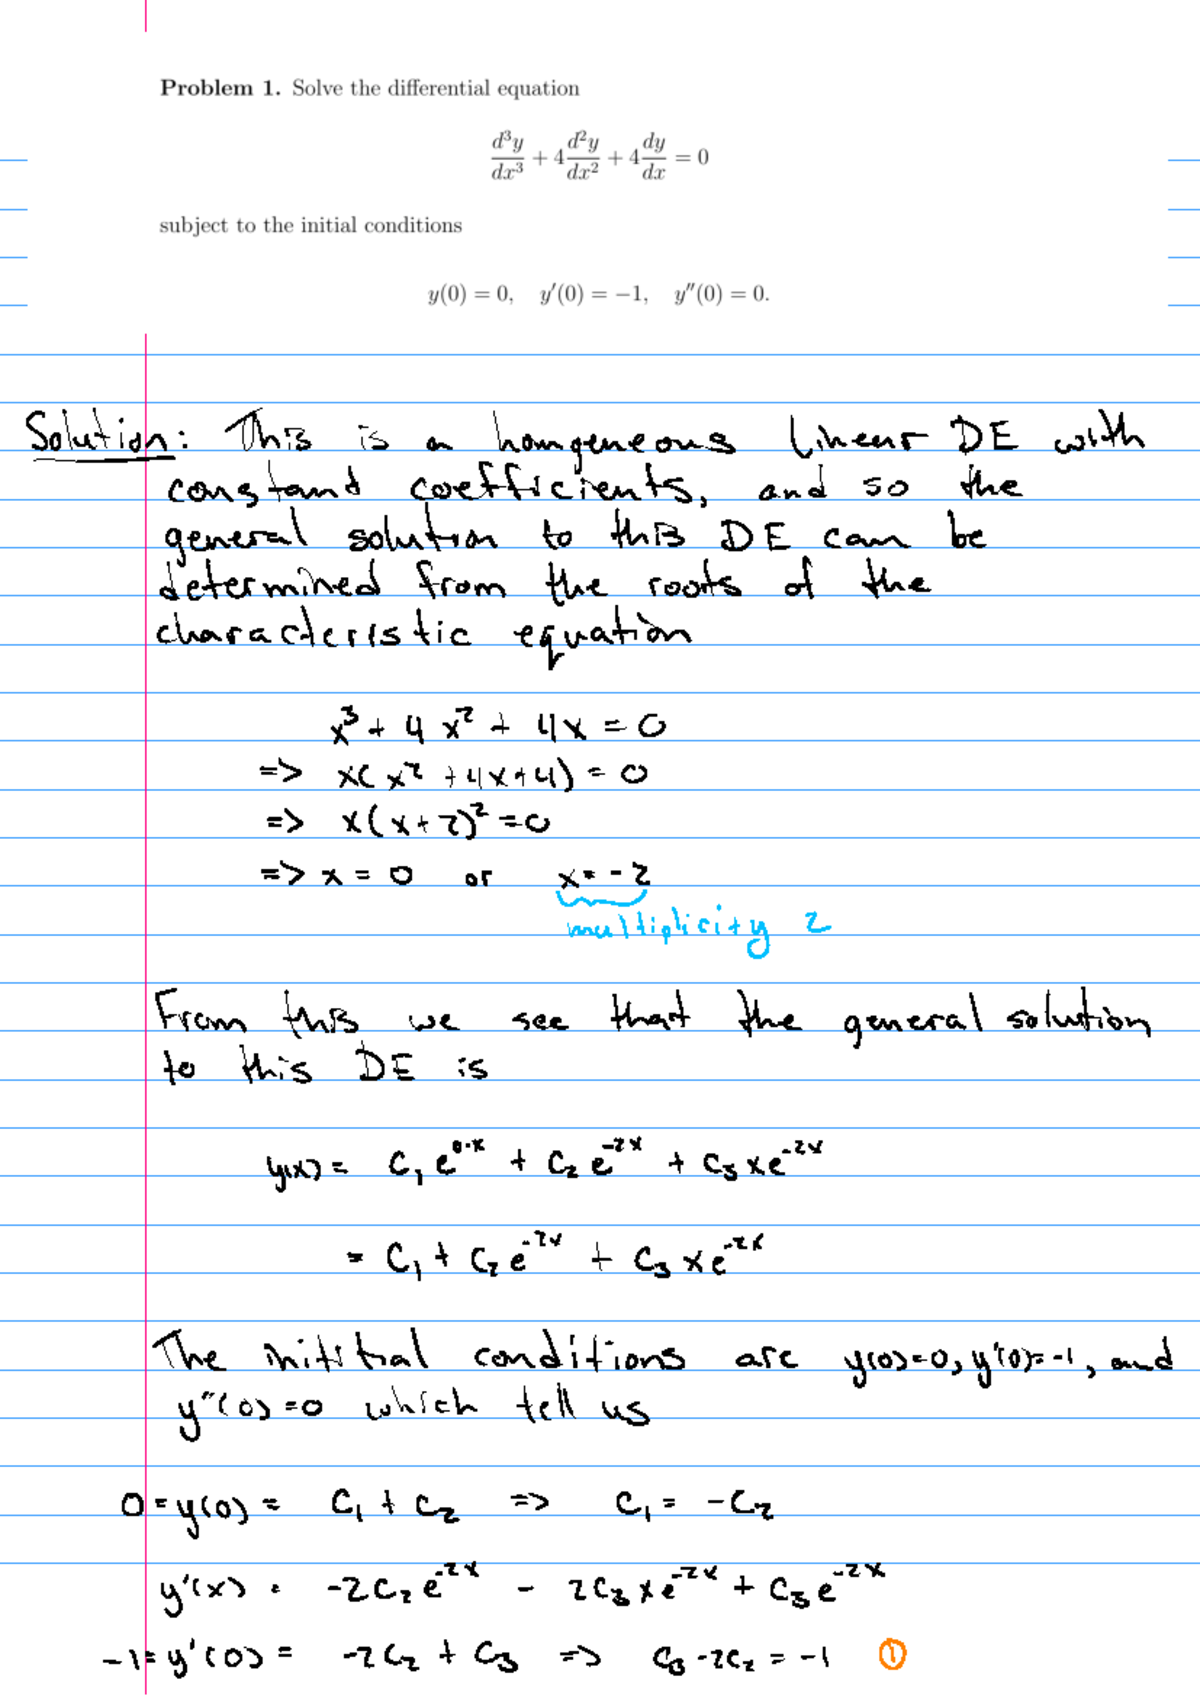 Problem 1. Solve the differential equation
d³y/dx³ + 4 d²y/dx² + 4 dy/dx = 0
subject to the initial conditions
y(0) = 0, y′(0) = −1, y″(0) = 0.
Solution: This is a homgeneous linear DE with
constand coefficients, and so the
general solution to this DE can be
determined from the roots of the
characteristic equation
x³ + 4x² + 4x = 0
=> x(x² + 4x + 4) = 0
=> x(x+2)² = 0
=> x = 0 or x = -2
multiplicity 2
From this we see that the general solution
to this DE is
y(x) = C₁e^(0·x) + C₂e^(-2x) + C₃xe^(-2x)
= C₁ + C₂e^(-2x) + C₃xe^(-2x)
The initital conditions are y(0)=0, y'(0)=-1, and
y"(0)=0 which tell us
0 = y(0) = C₁ + C₂ => C₁ = -C₂
y'(x) = -2C₂e^(-2x) - 2C₃xe^(-2x) + C₃e^(-2x)
-1 = y'(0) = -2C₂ + C₃ => C₃ - 2C₂ = -1 ①